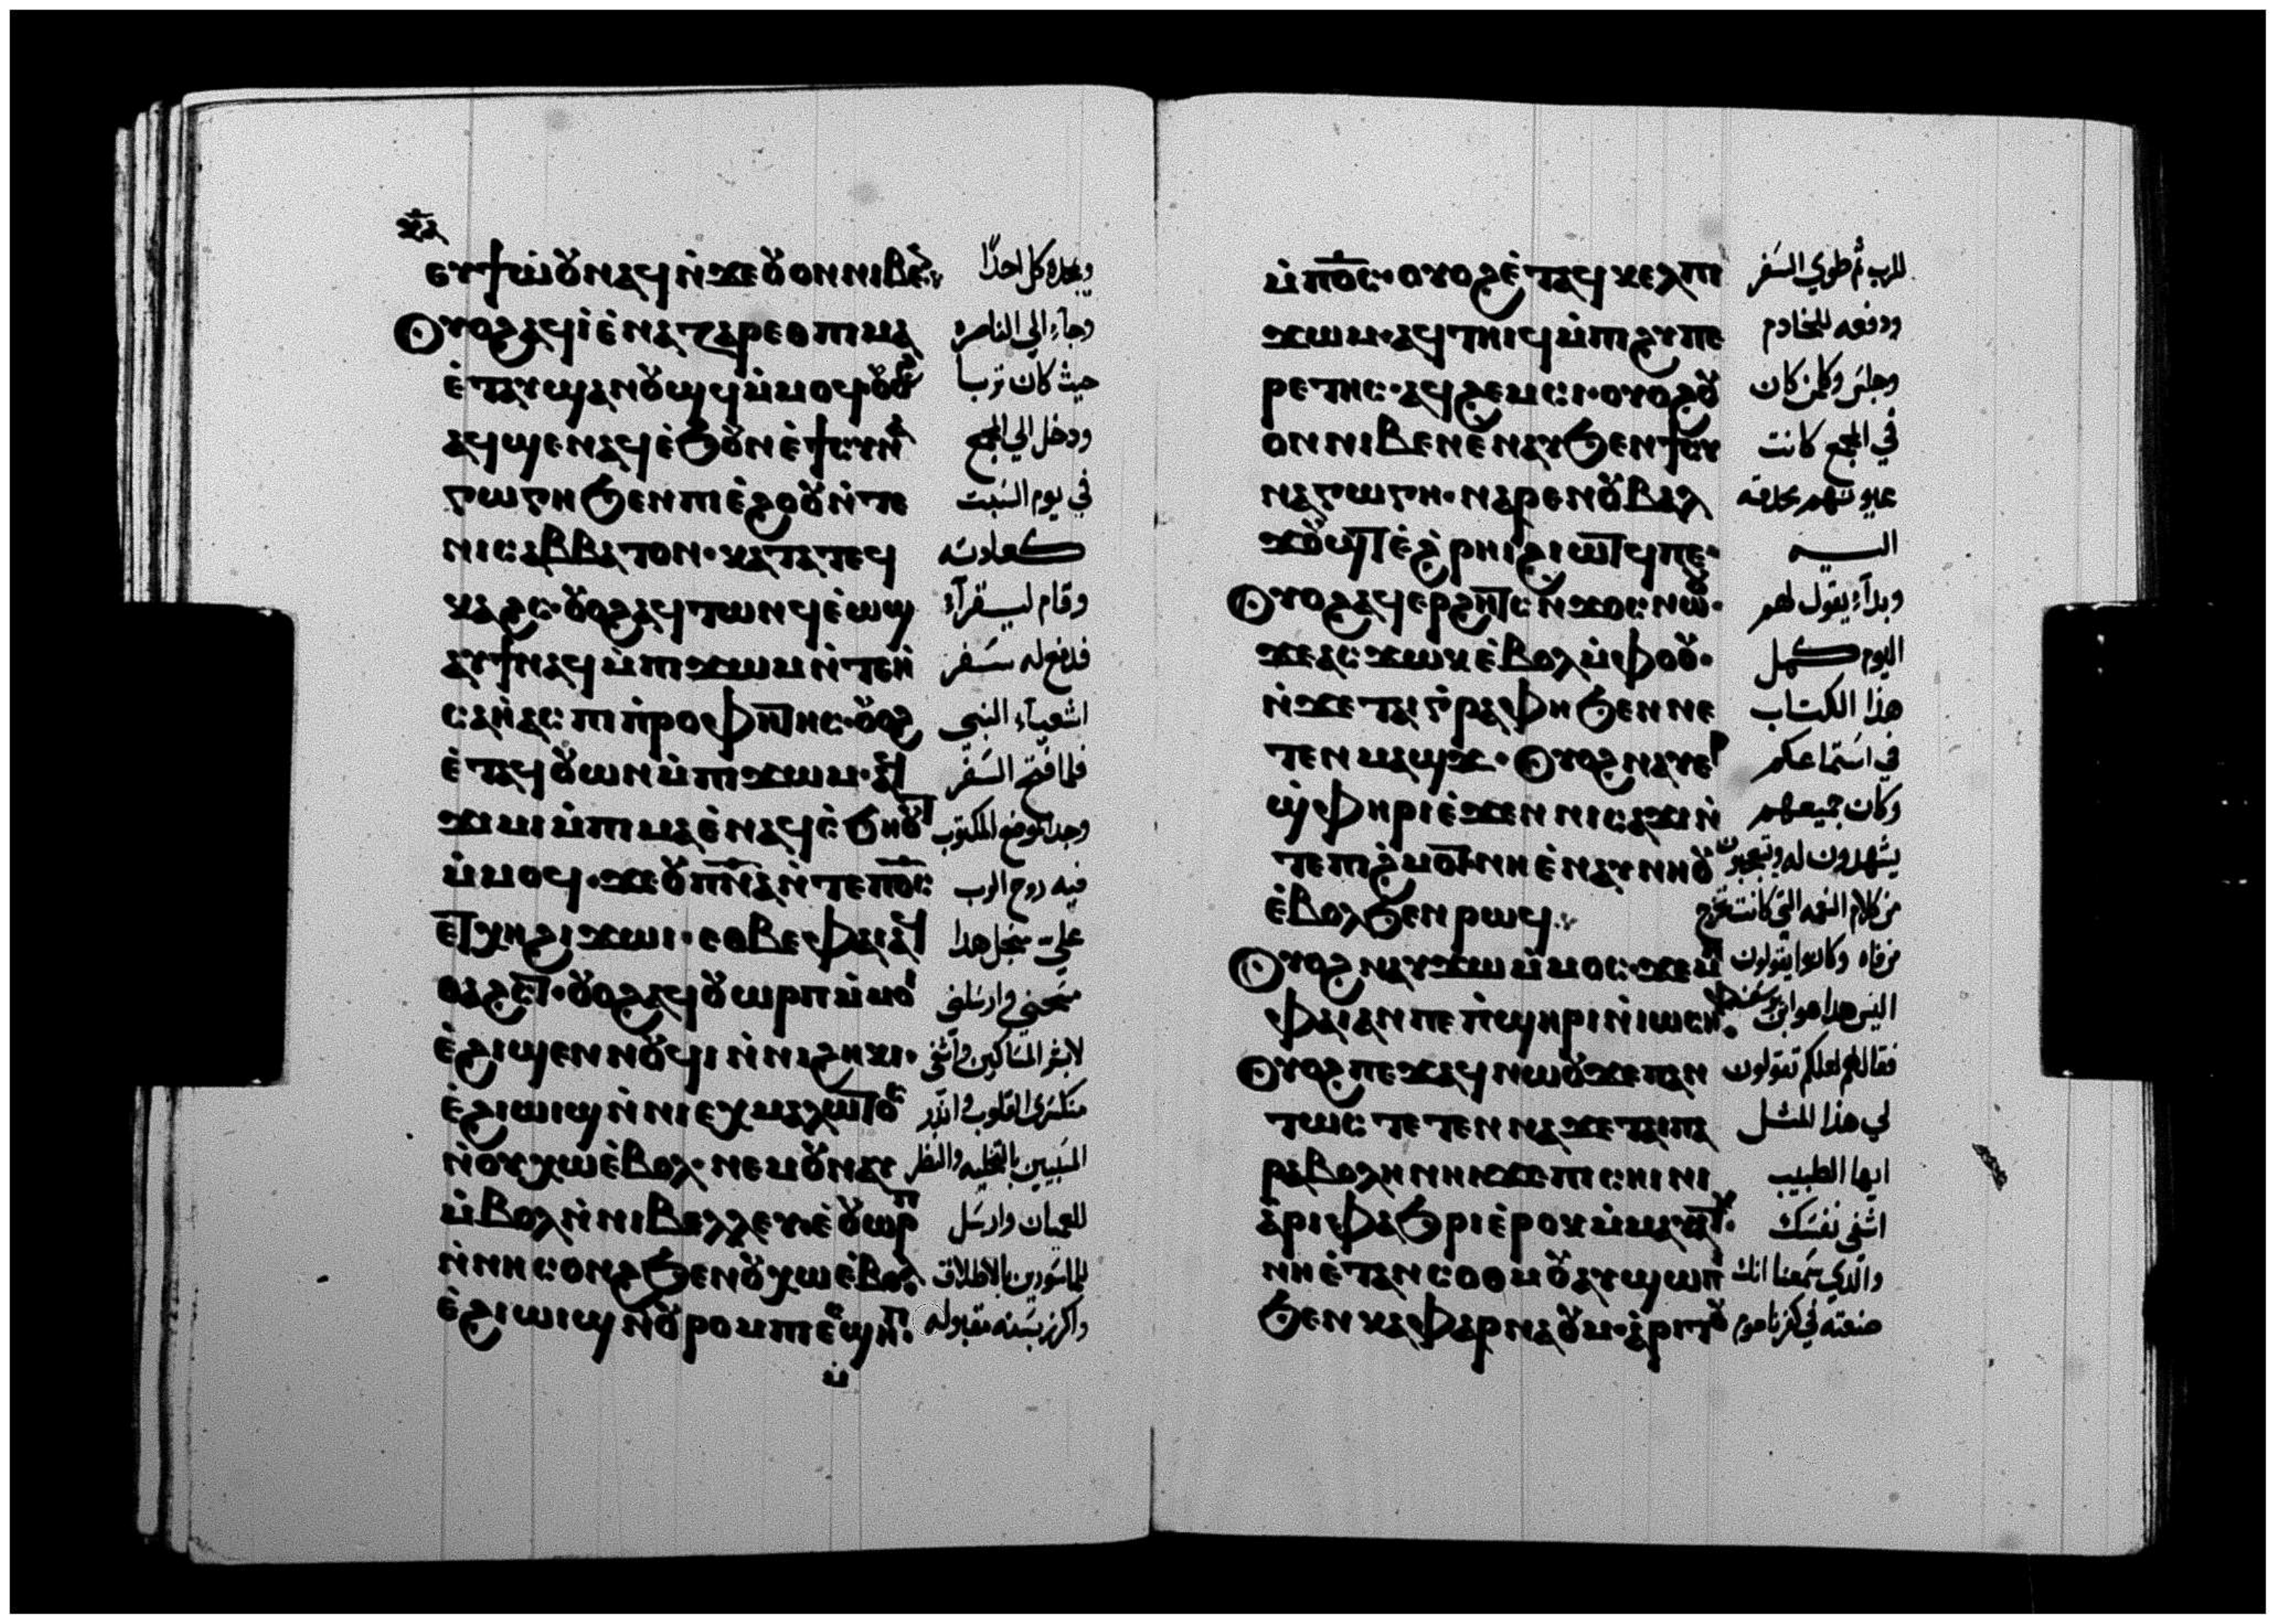 ⲉⲩϯⲱ̇ⲟⲩⲛⲁϥⲛ̇ϫⲉⲟⲩⲟⲛⲛⲓⲃⲉⲛ ويمجده كل احدًا
ⲟⲩⲟϩⲁϥⲓ̀ⲉ̀ⲛⲁⲍⲁⲣⲉⲑⲡⲓⲙⲁ وجاء الي الناصره
ⲉ̀ⲧⲁⲩϣⲁⲛⲟⲩϣϥⲙ̇ⲙⲟϥⲟⲩⲟϩ حيث كان تربا
ⲁϥϣⲉⲛⲁϥⲉ̀ϧⲟⲩⲛⲉ̀ϯⲥⲩⲛⲁ ودخل الي المجمع
ⲅⲱⲅⲏϧⲉⲛⲡⲓⲉ̀ϩⲟⲟⲩⲛ̇ⲧⲉ في يوم السبت
ⲛⲓⲥⲁⲃⲃⲁⲧⲟⲛ·ⲕⲁⲧⲁⲧⲉϥ كعادته
ⲕⲁϩⲥ·ⲟⲩⲟϩⲁϥⲧⲱⲛϥⲉ̀ⲱϣ وقام ليقرآء
ⲁⲩϯⲛⲁϥⲙ̇ⲡϫⲱⲙⲛ̇ⲧⲉⲏ̇ فدفع له سفر
ⲥⲁⲏ̇ⲁⲥⲡⲓⲡ̇ⲣⲟⲫⲏⲧⲏⲥ·ⲟⲩⲟϩ اشعياء النبي
ⲉ̀ⲧⲁϥⲟⲩⲱⲛⲙ̇ⲡϫⲱⲙ·ⲁϥ فلما فتح السفر
ϫⲓⲙⲓⲙ̇ⲡⲓⲙⲁⲉ̀ⲛⲁϥⲥ̇ϧⲏⲟⲩⲧ وجد الموضع المكتوب
ⲙ̇ⲙⲟϥ·ϫⲉⲟⲩⲡ̅ⲛ̅ⲁ̅ⲛ̇ⲧⲉⲡ̅ⲟ̅ⲥ̅ فيه روح الرب
ⲉⲧⲭⲏϩⲓϫⲱⲓ·ⲉⲑⲃⲉⲫⲁⲓⲁϥ علي من اجل هدا
ⲑⲁϩⲥⲧ·ⲟⲩⲟϩⲁϥⲟⲩⲱⲣⲡⲙ̇ⲙⲟⲓ مسحني وارسلني
ⲉ̀ϩⲓϣⲉⲛⲛⲟⲩϥⲓⲛ̇ⲛⲓϩⲏⲕⲓ· لابشر المساكين واشفي
ⲉ̀ϩⲓⲱⲓϣⲛ̇ⲛⲓⲉⲭⲙⲁⲗⲱⲧⲟⲥ منكسري القلوب وانذر
ⲛ̇ⲟⲩⲭⲱⲉ̀ⲃⲟⲗ·ⲛⲉⲙⲟⲩⲛⲁⲩ المسبيين بالتخليه والنظر
ⲙ̇ⲃⲟⲗⲛ̇ⲛⲓⲃⲉⲗⲗⲉⲩⲉ̀ⲟⲩⲱⲣⲡ للعميان وارسل
ⲛ̇ⲛⲏⲥⲟⲛϩϧⲉⲛⲟⲩⲭⲱⲉ̀ⲃⲟⲗ للماسورين بالاطلاق
ⲉ̀ϩⲓⲱⲓϣⲛ̇ⲟⲩⲣⲟⲙⲡⲓⲉⲥϣⲏⲡ واكرز بسنه مقبوله
ⲙ̇
ⲙ̇ⲡ̅ⲟ̅ⲥ̅·ⲟⲩⲟϩⲉ̀ⲧⲁϥⲕⲉⲗⲡ للرب ثم طوي السفر
ϫⲱⲙ·ⲁϥⲧⲏⲓϥⲙ̇ⲡϩⲩⲡⲉ ودفعه للخادم
ⲣⲉⲧⲏⲥ·ⲁϥϩⲉⲙⲥⲓ·ⲟⲩⲟϩⲟⲩ وجلس وكلمن كان
ⲟⲛⲛⲓⲃⲉⲛⲉⲛⲁⲩϧⲉⲛϯⲥⲩ في المجمع كانت
ⲛⲁⲅⲱⲅⲏ·ⲛⲁⲣⲉⲛⲟⲩⲃⲁⲗ عيونهم محدقه
ϫⲟⲩϣⲧⲉ̀ϩ̇ⲣⲏⲓϩⲓⲱⲧϥⲡⲉ· اليه
ⲟⲩⲟϩⲁϥⲉⲣϩⲏⲧⲥⲛ̇ϫⲟⲥⲛⲱⲟⲩ· وبدآء يقول لهم
ϫⲉⲁⲥϫⲱⲕⲉ̀ⲃⲟⲗⲙ̇ⲫⲟⲟⲩ· اليوم كمل
ⲛ̇ϫⲉⲧⲁⲓⲅ̇ⲣⲁⲫⲏϧⲉⲛⲛⲉ هذا الكتاب
ⲧⲉⲛⲙⲁϣϫ·ⲟⲩⲟϩⲛⲁⲩⲉⲣ في استماعكم
ϣ̇ⲫⲏⲣⲓⲉ̀ϫⲉⲛⲛⲓⲥⲁϫⲓⲛ̇ وكان جميعهم
ⲧⲉⲡϩ̇ⲙⲟⲧⲛⲏⲉ̀ⲛⲁⲩⲛⲏⲟⲩ يشهدون له ويتعجبون
ⲉ̀ⲃⲟⲗϧⲉⲛⲣⲱϥ من كلام النعمه التي كانت تخرج
ⲟⲩⲟϩⲛⲁⲩϫⲱⲙ̇ⲙⲟⲥ·ϫⲉⲙⲏ من فاه وكانوا يقولون
ⲫⲁⲓⲁⲛⲡⲉⲡ̇ϣⲏⲣⲓⲛ̇ⲓⲱⲥⲏⲫ· اليس هدا هو ابن يوسف
ⲟⲩⲟϩⲡⲉϫⲁϥⲛⲱⲟⲩϫⲉⲡⲁⲛ فقال لهم لعلكم تقولون
ⲧⲱⲥⲧⲉⲧⲉⲛⲛⲁϫⲉⲧⲁⲓⲡⲁ لي هذا المثل
ⲣⲁⲃⲟⲗⲏⲛⲏⲓϫⲉⲡⲓⲥⲏⲓⲛⲓ ايها الطبيب
ⲁ̇ⲣⲓⲫⲁϧⲣⲓⲉ̀ⲣⲟⲕⲙ̇ⲙⲁⲩⲁⲧⲕ· اشفي نفسك
ⲛⲏⲉ̀ⲧⲁⲛⲥⲟⲑⲙⲟⲩⲁⲩϣⲱⲡⲓ والذي سمعنا انك
ϧⲉⲛⲕⲁⲫⲁⲣⲛⲁⲟⲩⲙ·ⲁ̇ⲣⲓⲧⲟⲩ صنعته في كفرناحوم